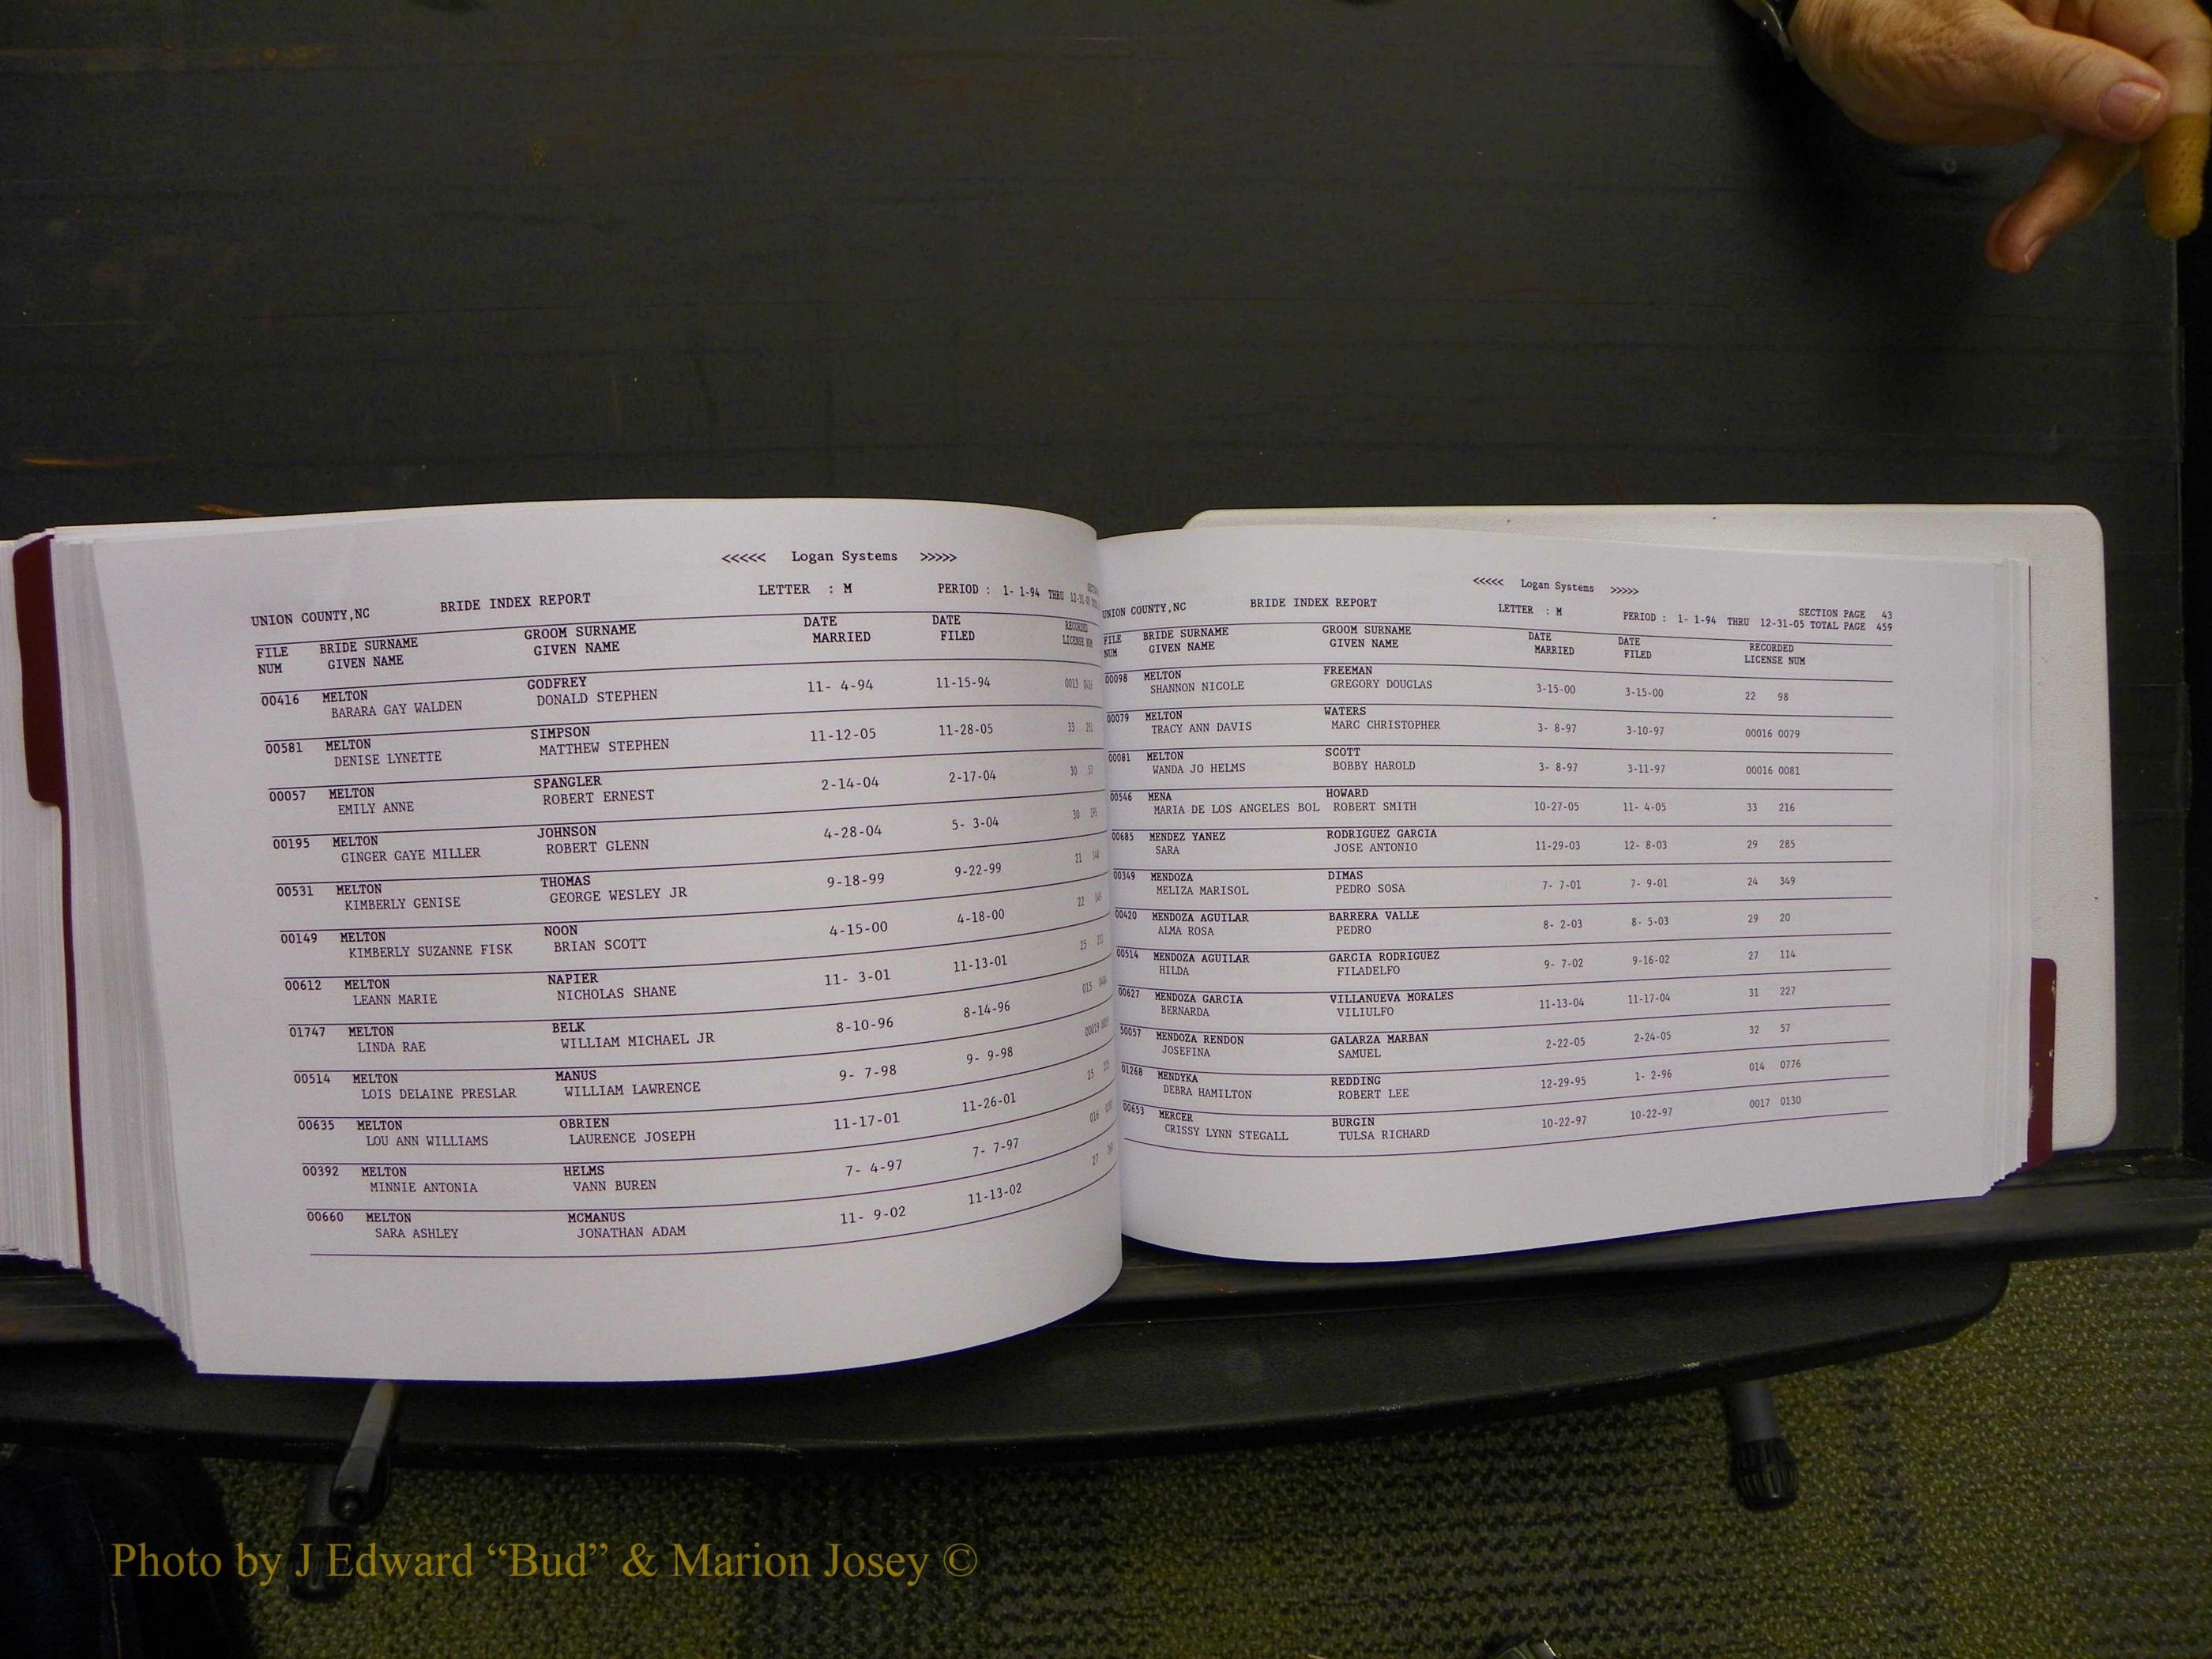 <<<<< Logan Systems >>>>>
UNION COUNTY,NC BRIDE INDEX REPORT LETTER : M PERIOD : 1- 1-94 THRU
FILE BRIDE SURNAME GROOM SURNAME DATE DATE RECORDED
NUM GIVEN NAME GIVEN NAME MARRIED FILED LICENSE NUM
00416 MELTON GODFREY 11- 4-94 11-15-94
BARARA GAY WALDEN DONALD STEPHEN
00581 MELTON SIMPSON 11-12-05 11-28-05 33
DENISE LYNETTE MATTHEW STEPHEN
00057 MELTON SPANGLER 2-14-04 2-17-04 30
EMILY ANNE ROBERT ERNEST
00195 MELTON JOHNSON 4-28-04 5- 3-04 30
GINGER GAYE MILLER ROBERT GLENN
00531 MELTON THOMAS 9-18-99 9-22-99 21
KIMBERLY GENISE GEORGE WESLEY JR
00149 MELTON NOON 4-15-00 4-18-00 22
KIMBERLY SUZANNE FISK BRIAN SCOTT
00612 MELTON NAPIER 11- 3-01 11-13-01 25
LEANN MARIE NICHOLAS SHANE
01747 MELTON BELK 8-10-96 8-14-96 015
LINDA RAE WILLIAM MICHAEL JR
00514 MELTON MANUS 9- 7-98 9- 9-98
LOIS DELAINE PRESLAR WILLIAM LAWRENCE
00635 MELTON OBRIEN 11-17-01 11-26-01 25
LOU ANN WILLIAMS LAURENCE JOSEPH
00392 MELTON HELMS 7- 4-97 7- 7-97 016
MINNIE ANTONIA VANN BUREN
00660 MELTON MCMANUS 11- 9-02 11-13-02 27
SARA ASHLEY JONATHAN ADAM
<<<<< Logan Systems >>>>>
SECTION PAGE 43
UNION COUNTY,NC BRIDE INDEX REPORT LETTER : M PERIOD : 1- 1-94 THRU 12-31-05 TOTAL PAGE 459
FILE BRIDE SURNAME GROOM SURNAME DATE DATE RECORDED
NUM GIVEN NAME GIVEN NAME MARRIED FILED LICENSE NUM
00098 MELTON FREEMAN 3-15-00 3-15-00 22 98
SHANNON NICOLE GREGORY DOUGLAS
00079 MELTON WATERS 3- 8-97 3-10-97 00016 0079
TRACY ANN DAVIS MARC CHRISTOPHER
00081 MELTON SCOTT 3- 8-97 3-11-97 00016 0081
WANDA JO HELMS BOBBY HAROLD
00546 MENA HOWARD 10-27-05 11- 4-05 33 216
MARIA DE LOS ANGELES BOL ROBERT SMITH
00685 MENDEZ YANEZ RODRIGUEZ GARCIA 11-29-03 12- 8-03 29 285
SARA JOSE ANTONIO
00349 MENDOZA DIMAS 7- 7-01 7- 9-01 24 349
MELIZA MARISOL PEDRO SOSA
00420 MENDOZA AGUILAR BARRERA VALLE 8- 2-03 8- 5-03 29 20
ALMA ROSA PEDRO
00514 MENDOZA AGUILAR GARCIA RODRIGUEZ 9- 7-02 9-16-02 27 114
HILDA FILADELFO
00627 MENDOZA GARCIA VILLANUEVA MORALES 11-13-04 11-17-04 31 227
BERNARDA VILIULFO
50057 MENDOZA RENDON GALARZA MARBAN 2-22-05 2-24-05 32 57
JOSEFINA SAMUEL
01268 MENDYKA REDDING 12-29-95 1- 2-96 014 0776
DEBRA HAMILTON ROBERT LEE
00653 MERCER BURGIN 10-22-97 10-22-97 0017 0130
CRISSY LYNN STEGALL TULSA RICHARD
Photo by J Edward “Bud” & Marion Josey ©